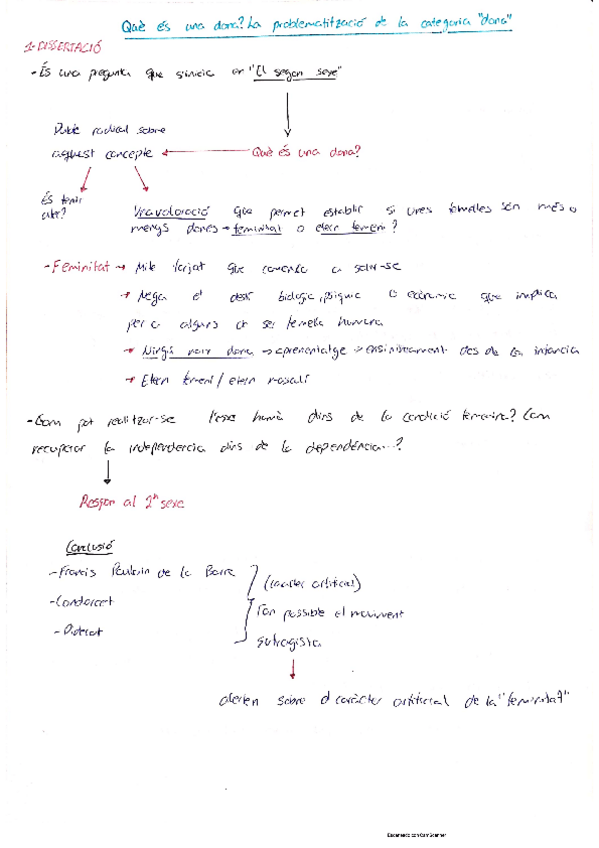 Què és una dona? La problematització de la categoria "dona"
1-DISSERTACIÓ
- És una pregunta que s'inicia en "El segon sexe"
Dubte radical sobre
aquest concepte
Què és una dona?
És tenir
úter?
Una valoració que permet establir si unes femelles són més o
menys dones → feminitat o etern femení?
- Feminitat → Mite forjat que comença a
→ Nega el destí biologic, psiquic o economic que implica
per a alguns el ser femella humana
→ Ningú neix dona → aprenentatge → ensinistrament des de la infancia
→ Etern femení / etern masculí
- Com pot realitzar-se l'ésser humà dins de la condició femenina? Com
recuperar la independencia dins de la dependència...?
Respon al 2n sexe
Conclusió
- Francis Poulain de la Barre
- Condorcet
- Diderot
(caràcter artificial)
Fan possible el moviment
sufragista
alerten sobre el caràcter artificial de la "feminitat"
Escaneado con CamScanner